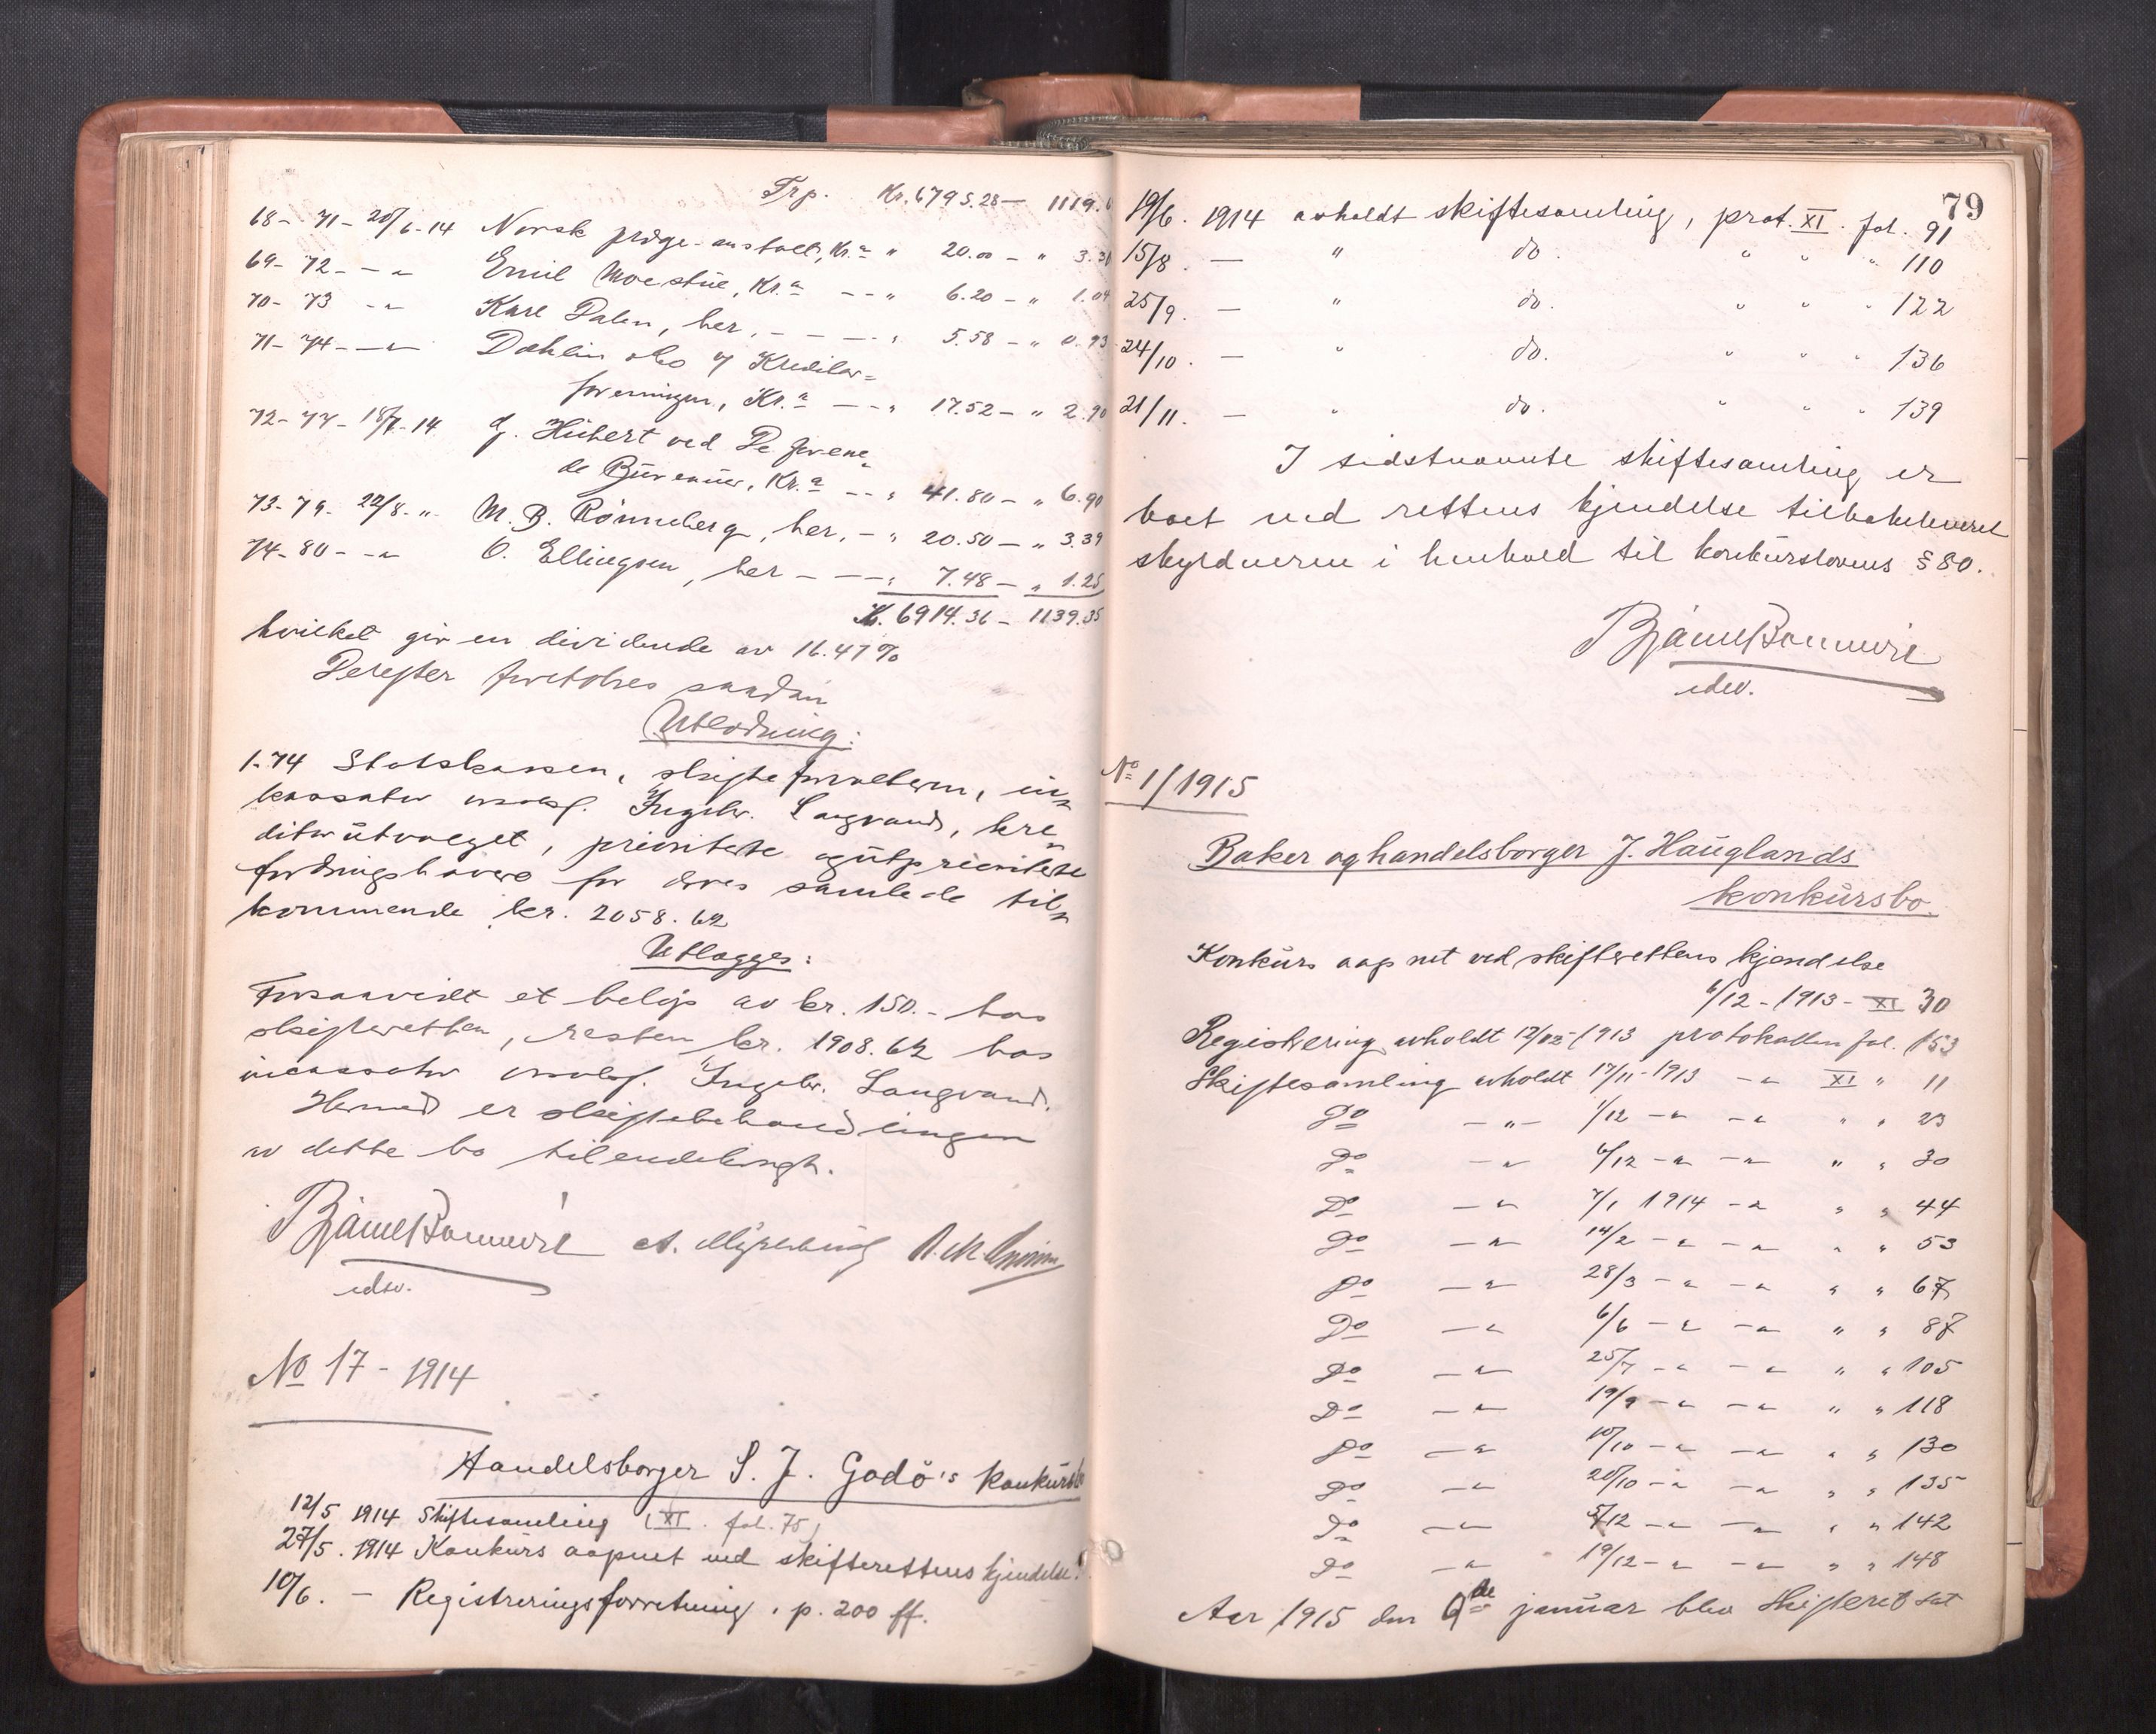 Trp. Kr. 6795.28 — 1119.
68 - 71 - 20/6-14 Norsk præge-anstalt, Kr.a " 20.00 - " 3.30
69 - 72 - - " Emil Moestue, Kr.a - - " 6.20 - " 1.04
70 - 73 - " Karl Dalen, her. - - - " 5.58 - " 0.93
71 - 74 - - " Dahlin &Co v/ Kreditor=
foreningen, Kr.a - - " 17.52 - " 2.90
72 - 77 - 18/7-14 J. Hübert ved De forene=
de Büreauer, Kr.a - - " 41.80 - " 6.90
73 - 79 - 22/8 - " M. B. Rönneberg, her, - " 20.50 - " 3.39
74 - 80 - - " O. Ellingsen, her - - - " 7.48 - " 1.25
Kr. 6914.36 - 1139.35
hvilket gir en dividende av 16.47 %
Derefter foretokes saadan
Utlodning:
1-74 Statskassen, skifteforvalteren, in=
kassator Ingebr. Langvand, kre=
ditorutvalget, prioriterte og uprioriterte
fordringshavere for deres samlede til=
kommende kr. 2058.62
Utlægges:
Forsaavidt et beløp av kr. 150.- hos
skifteretten, resten kr. 1908.62 hos
incassator Ingebr. Langvand.
Hermed er skiftebehandlingen
av dette bo tilendebragt.
edsv.
No 17 - 1914
Handelsborger S. J. Godö's konkürsbo
12/5 1914 Skiftesamling (XI. fol. 75)
27/5. 1914 Konkürs aapnet ved skifterettens kjendelse.
10/6. - Registreringsforretning, p. 200 ff.
79
19/6. 1914 avholdt skiftesamling, prot. XI. fol. 91
15/8. — " do. " " " 110
25/9. — " do. " " " 122
24/10. — " do. " " " 136
21/11. — " do. " " " 139
I sidstnævnte skiftesamling er
boet ved rettens kjendelse tilbakeleveret
skyldneren i henhold til konkürslovens § 80.
edsv.
No 1/1915
Baker og handelsborger J. Haüglands
konkürsbo.
Konkürs aapnet ved skifterettens kjendelse
6/12 - 1913 - XI 30
Registrering avholdt 12/12-1913 protokollen fol. 153
Skiftesamling avholdt 17/11-1913 - " XI " 11
Do - " - 1/12 - " - " " " 23
Do - " 6/12 - " - " " " 30
Do - " 7/1 1914 - " " " 44
Do - " 14/2 - " - " " " 53
Do - " 28/3 - " - " " " 67
Do - " 6/6 - " - " " " 87
Do - " 25/7 - " - " " " 105
Do - " 19/9 - " - " " " 118
Do - " 10/10 - " - " " " 130
Do - " 20/10 - " - " " " 135
Do - " 5/12 - " - " " " 142
Do - " 19/12 - " - " " " 148
Aar 1915 den 9de januar blev skifteret sat